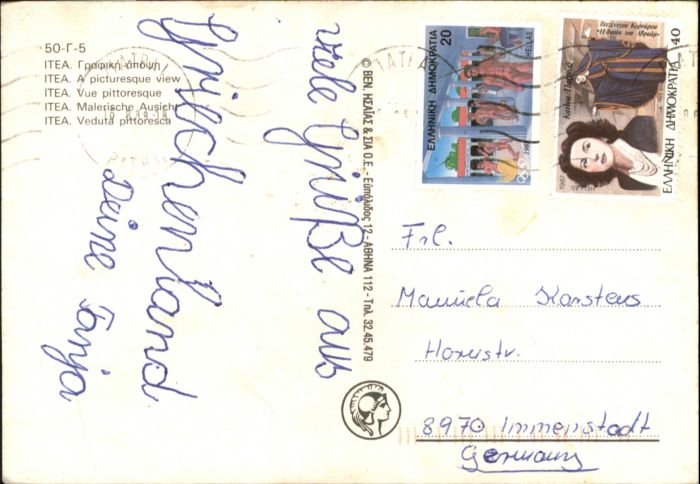 50-Γ-5
ΙΤΕΑ. Γραφική άποψη
ITEA. A picturesque view
ITEA. Vue pittoresque
ITEA. Malerische Ausicht
ITEA. Veduta pittoresca
viele Grüße aus
Griechenland
Deine Tanja
© ΒΕΝ. ΗΣΑΪΑΣ & ΣΙΑ Ο.Ε. - Ευπόλιδος 12 - ΑΘΗΝΑ 112 - Τηλ. 32.45.479
ΕΛΛΗΝΙΚΗ ΔΗΜΟΚΡΑΤΙΑ 20
HELLAS
Βιτζέντζου Κορνάρου
"Η θυσία του Αβραάμ"
40
Κατίνα Παξινού
ΕΛΛΗΝΙΚΗ ΔΗΜΟΚΡΑΤΙΑ
1987 HELLAS
Frl.
Manuela Karstens
8970 Immenstadt
Germany